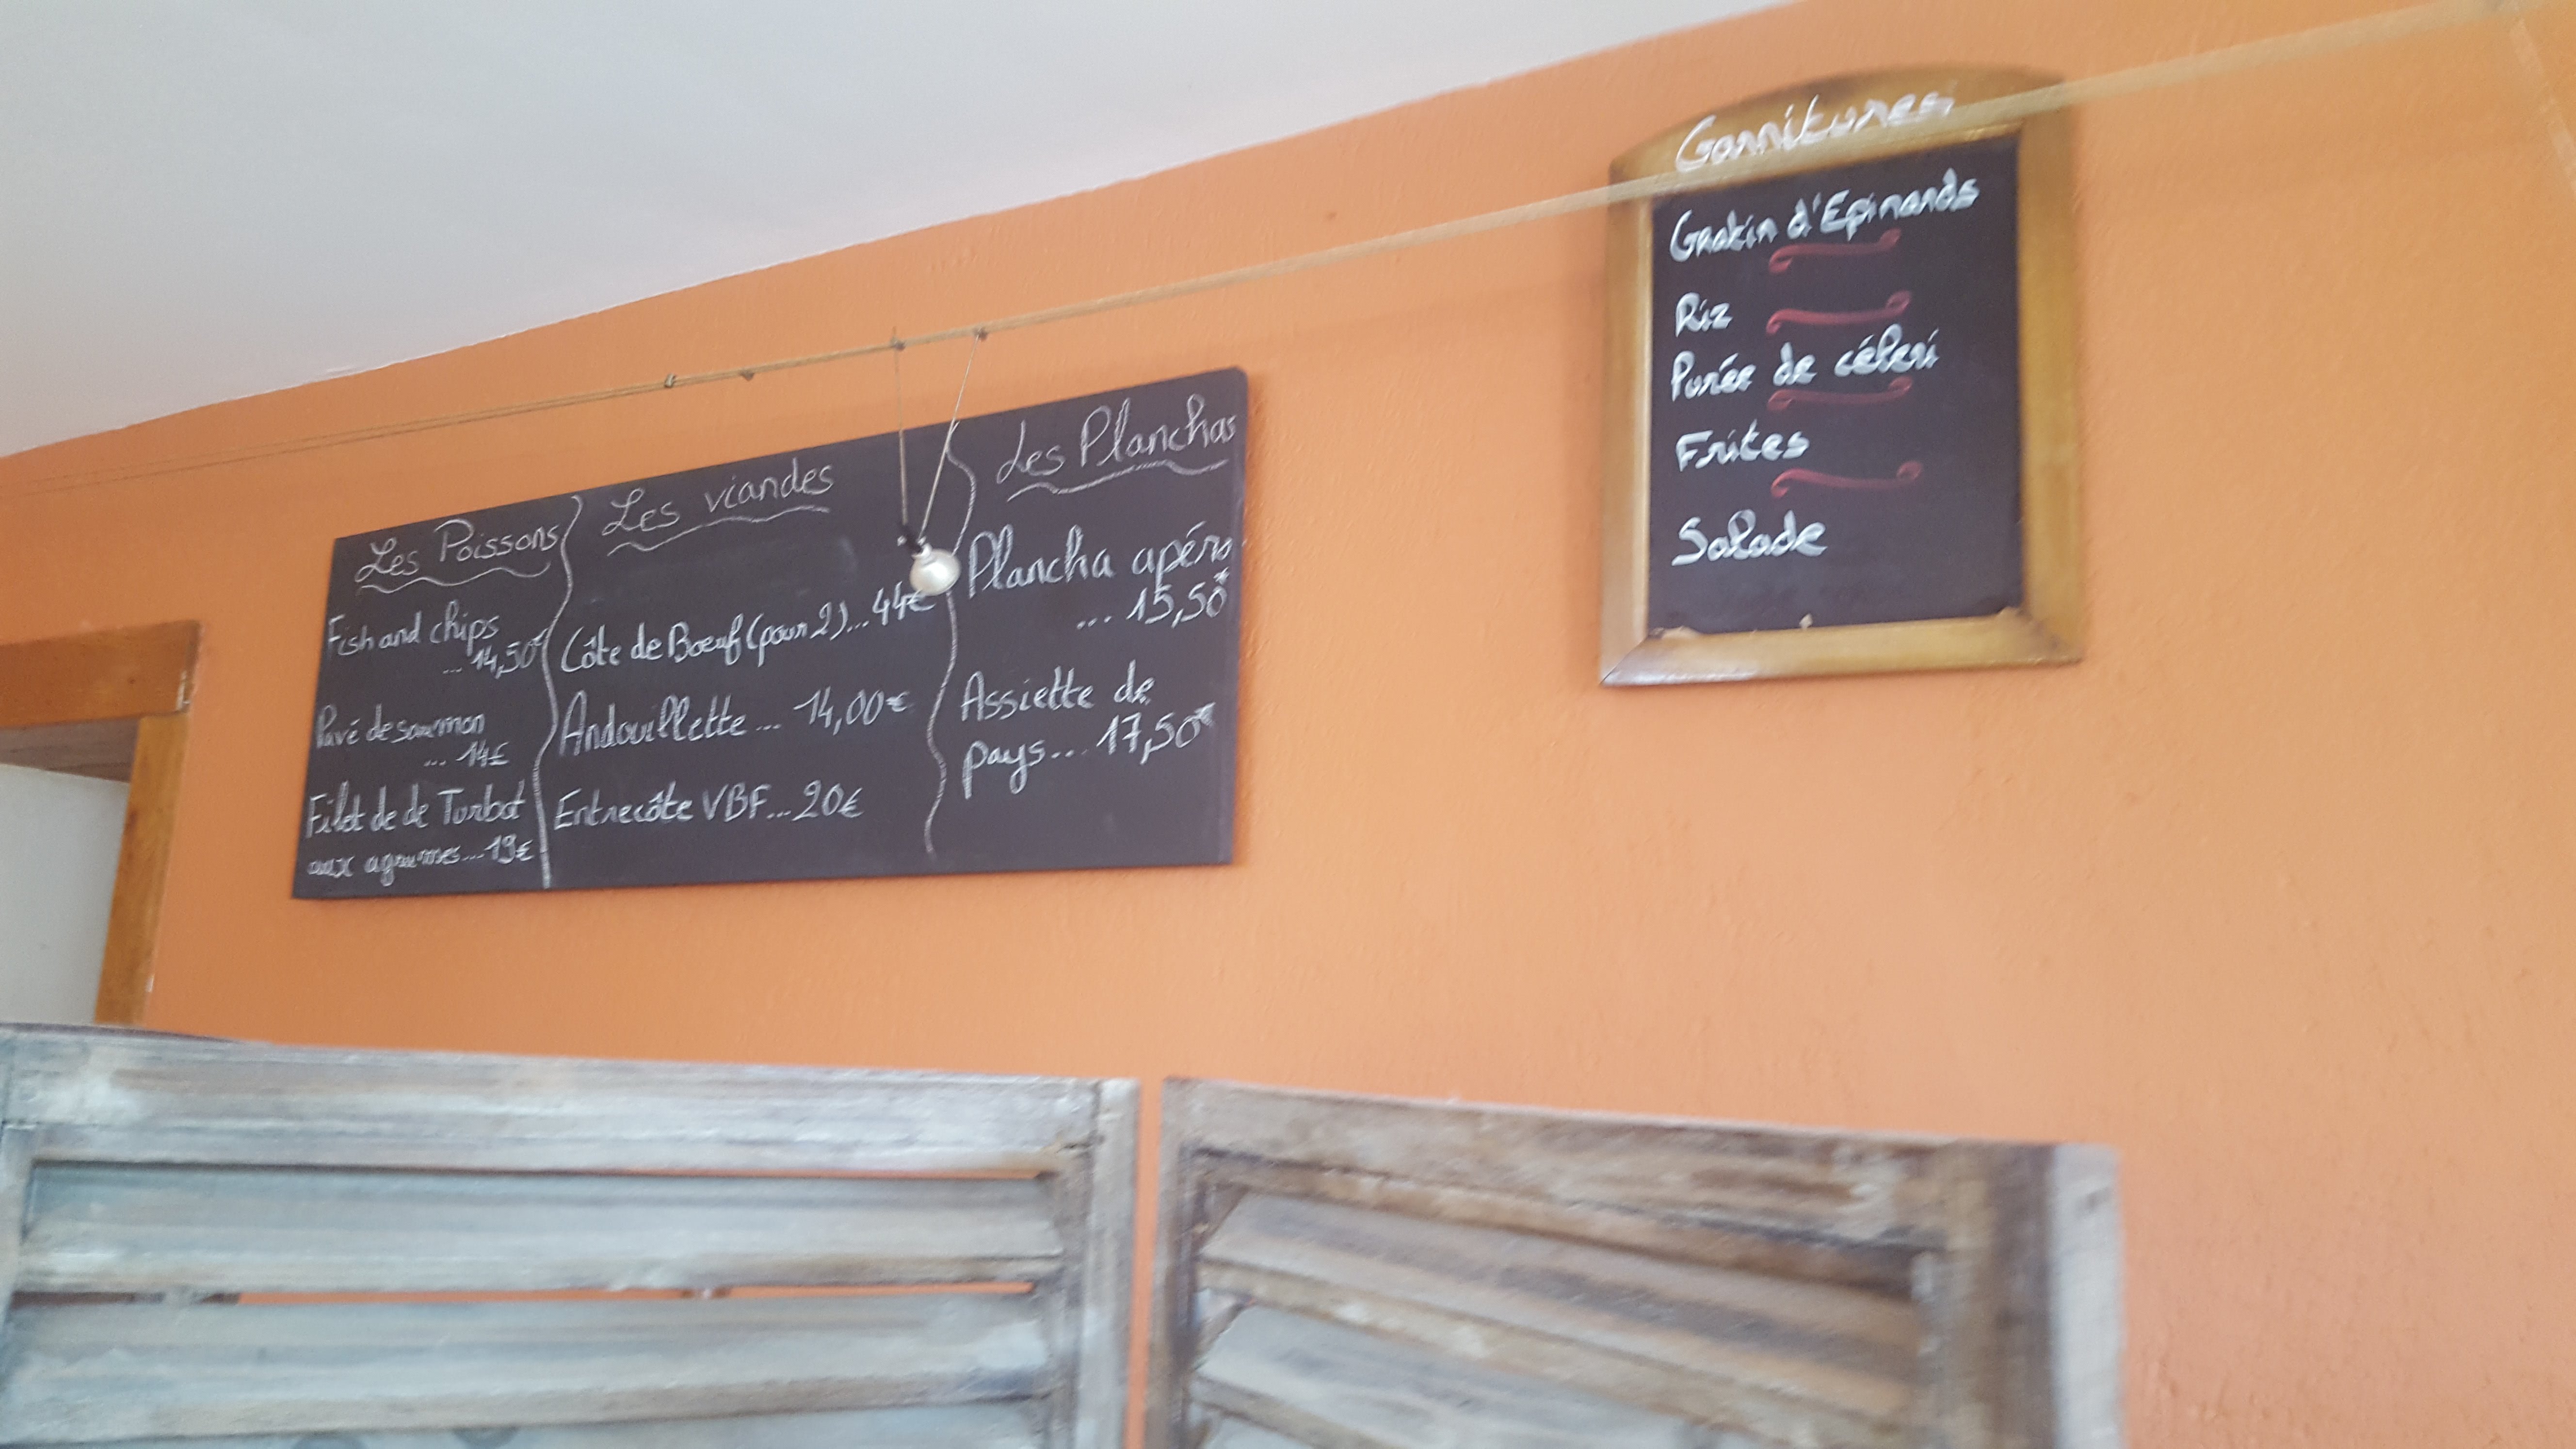 Les Poissons
Fish and chips
... 14,50€
Pavé de saumon
... 14€
Filet de de Turbot
aux agrumes... 19€
Les viandes
Côte de Boeuf (pour 2)... 44€
Andouillette ... 14,00€
Entrecôte VBF... 20€
Les Planchas
Plancha apéro
... 15,50€
Assiette de
pays... 17,50€
Garnitures
Gratin d'Epinards
Riz
Purée de céleri
Frites
Salade